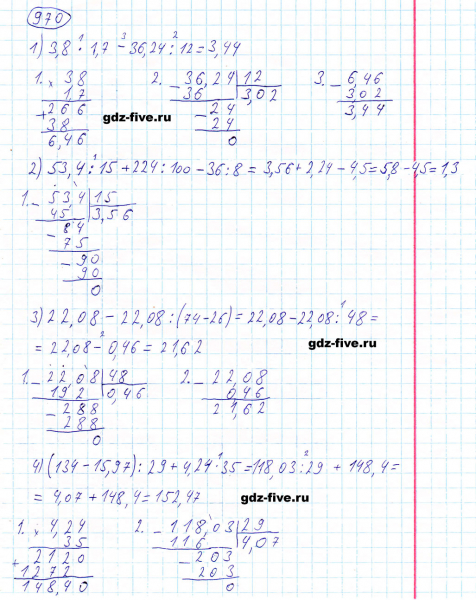 970
1) 3,8 · 1,7 - 36,24 : 12 = 3,44
1. × 38
17
+ 266
38
6,46
2. - 36,24 | 12
36 | 3,02
- 24
24
0
3. - 6,46
3,02
3,44
gdz-five.ru
2) 53,4 : 15 + 224 : 100 - 36 : 8 = 3,56 + 2,24 - 4,5 = 5,8 - 4,5 = 1,3
1. - 53,4 | 15
45 | 3,56
- 84
75
- 90
90
0
3) 22,08 - 22,08 : (74 - 26) = 22,08 - 22,08 : 48 =
= 22,08 - 0,46 = 21,62
gdz-five.ru
1. - 22,08 | 48
192 | 0,46
- 288
288
0
2. - 22,08
0,46
21,62
4) (134 - 15,97) : 29 + 4,24 · 35 = 118,03 : 29 + 148,4 =
= 4,07 + 148,4 = 152,47
gdz-five.ru
1. × 4,24
35
+ 2120
1272
148,40
2. - 118,03 | 29
116 | 4,07
- 203
203
0